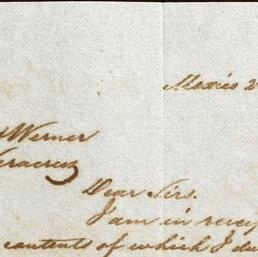 Mexico 2
Werner
Veracruz
Dear Sirs.
I am in recei
contents of which I du